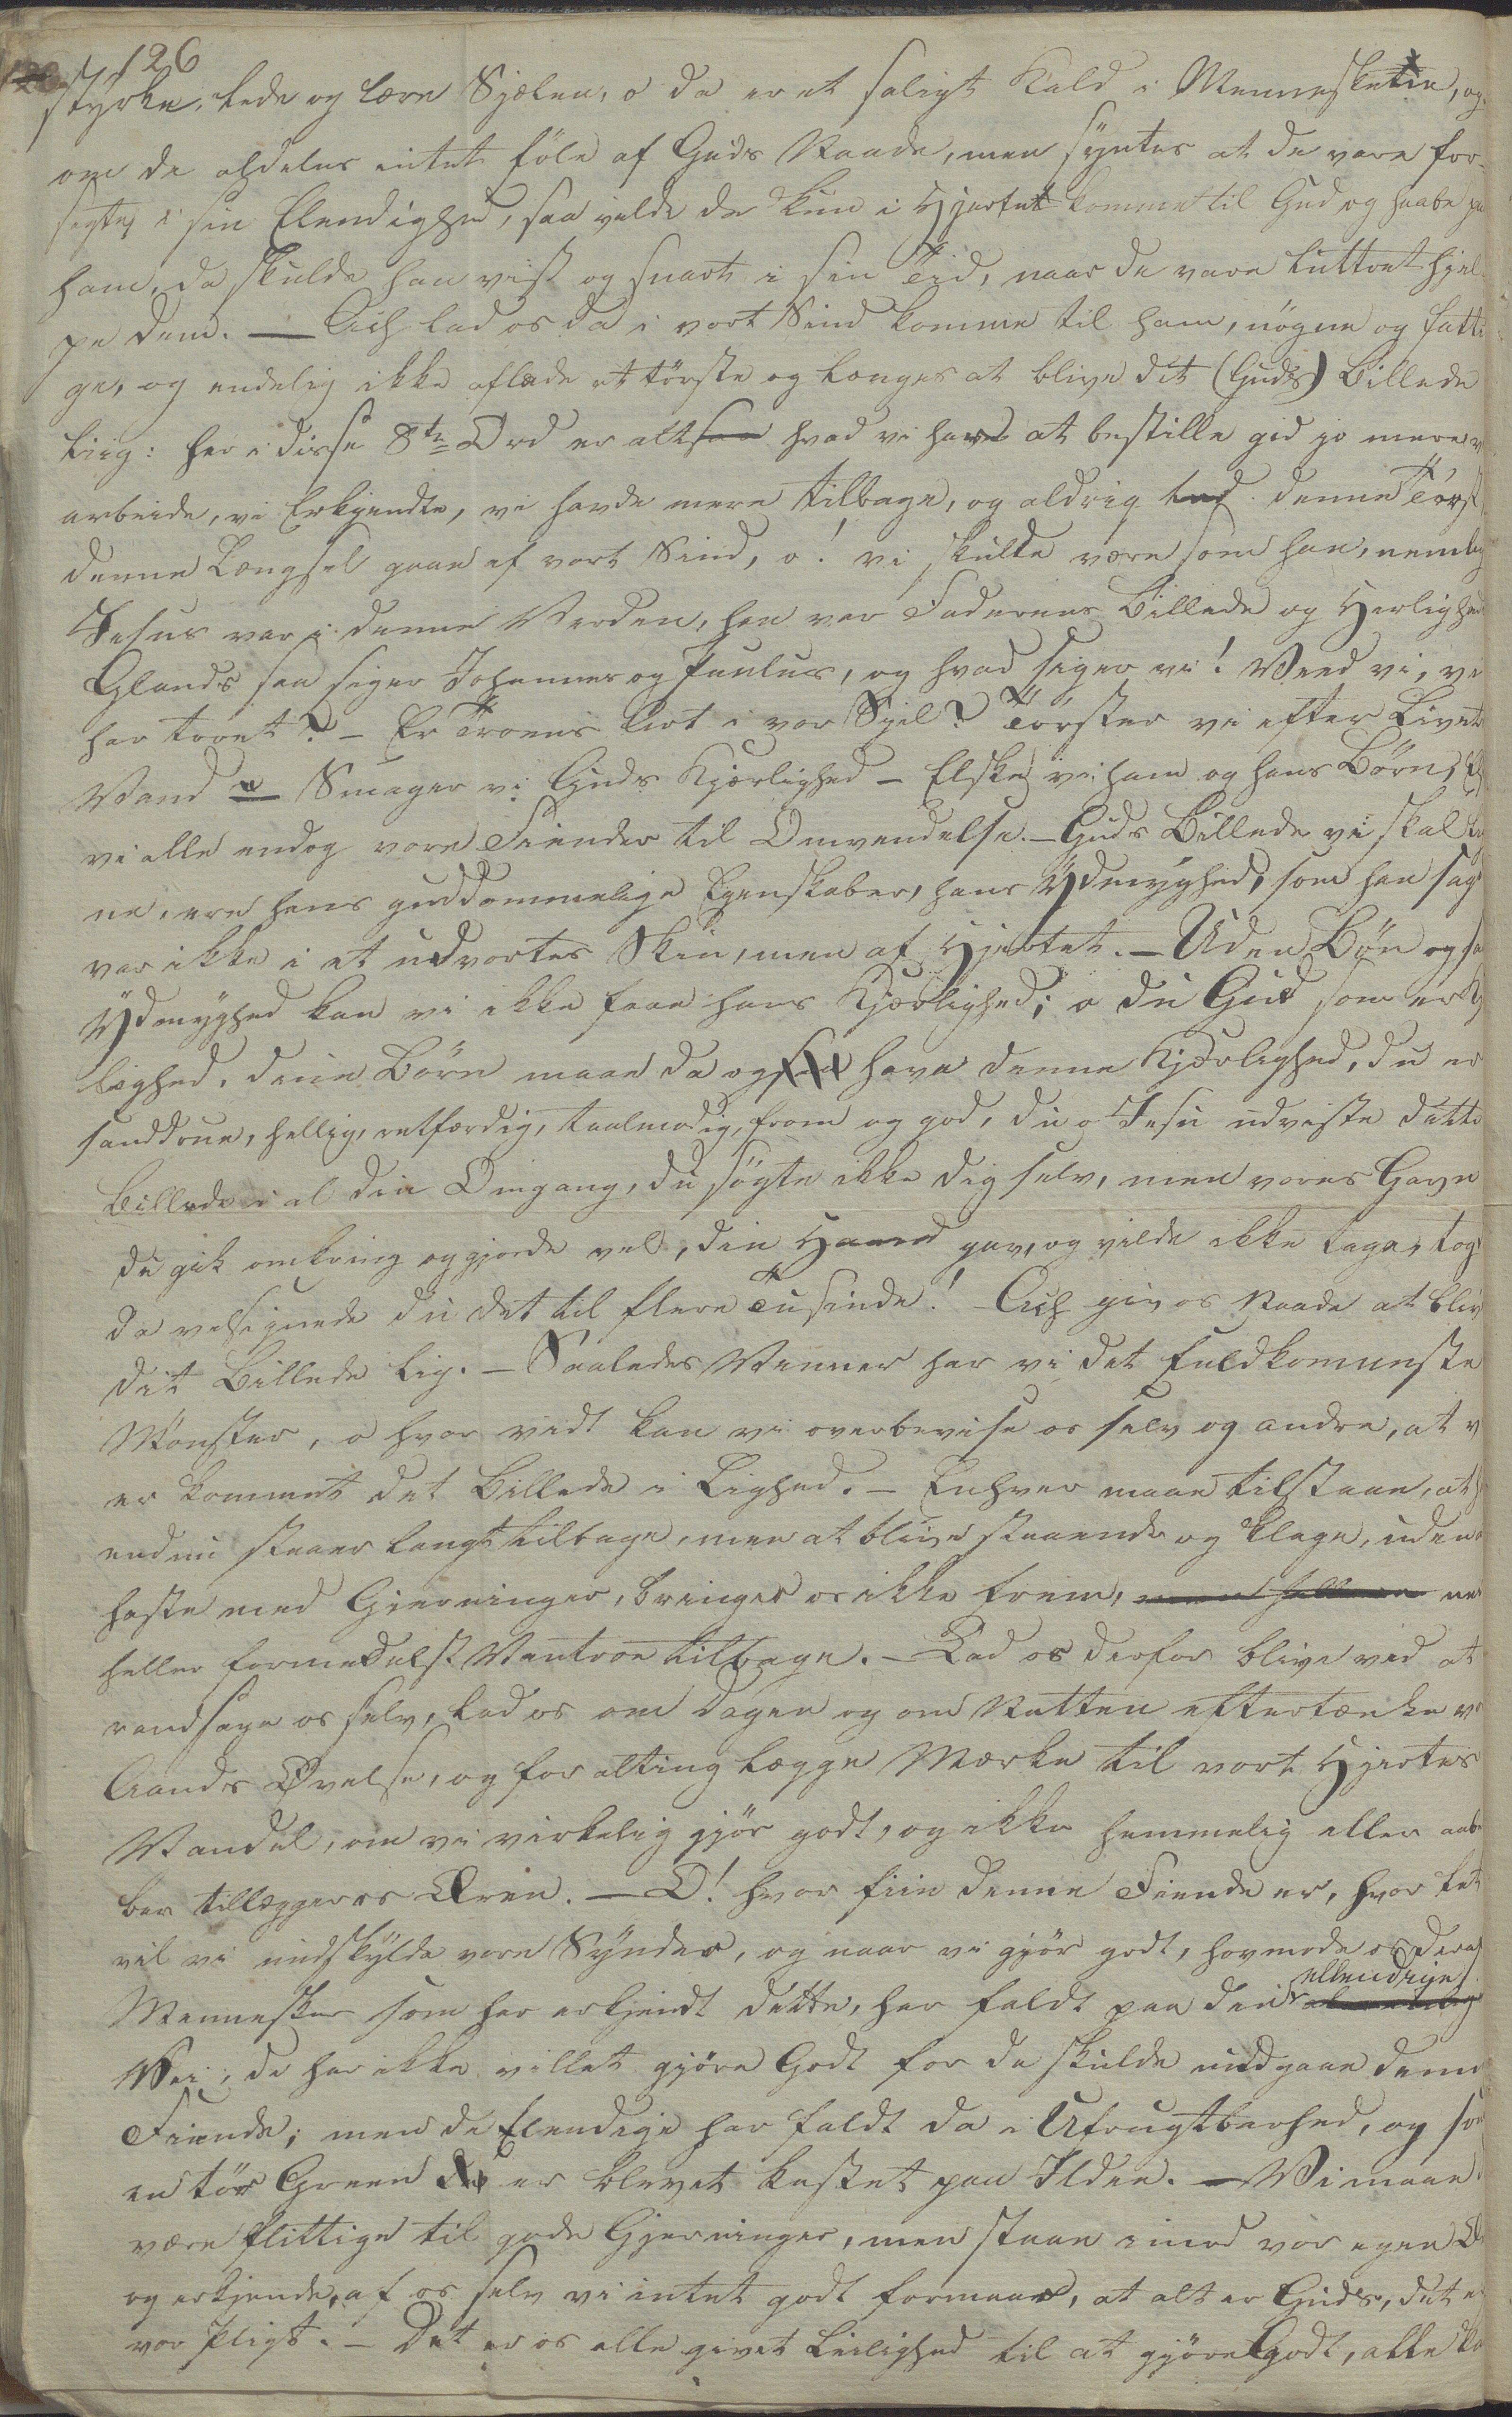 126
styrke, lede og lære Sjælen, o da er et saligt Kald i Mennesket, og
om de aldeles intet föle af Guds Naade, men syntes at de vare for-
sagte i sin Elendighed, saa vilde de kun i Hjertet komme til Gud og haabe paa
ham, da skulde han vist og snart i sin Tid, naar de vare luttret hjel-
pe dem. — Ach lad os da i vort Sind komme til ham, nögne og fatti
ge, og endelig ikke aflade at törste og længes at blive dit (Guds) Billede
liig: her i disse 8te Ord er alt hvad vi have at bestille gid jo mere vi
arbeide, vi Erkjendte, vi havde mere tilbage, og aldrig lad denne Törst,
denne Længsel gaae af vort Sind, o! vi skulde være som han, nemlig
Jesus var i denne Verden, han var Faderens Billede og Herligheds
Glands saa siger Johannes og Paulus, og hvad siger vi! Veed vi, vi
har troet? – Er Troens Art i vor Sjel? Törster vi efter Livets
Vand – Smager vi Guds Kjærlighed – Elske vi ham og hans Börn,
vi alle endog vore Fiender til Omvendelse. – Guds Billede vi skal
ne, ere hans guddommelige Egenskaber, hans Ydmyghed, som han sagde
var ikke i et udvortes Skin, men af Hjertet. – Uden Bön og
Ydmyghed kan vi ikke faae hans Kjærlighed; o du Gud som er Kj
lighed, dine Börn maae da og have denne Kjærlighed, du er
sanddrue, hellig, retfærdig, taalmodig, from og god, du o Jesu udviste dette
Billede i al din Omgang, du søgte ikke dig selv, men vores Gavn
du gik omkring og gjorde vel, din Haand gav, og vilde ikke tage, tog
da velsignede du det til flere Tusinde! – Ach giv os Naade at bliv
dit Billede lig. – Saaledes Venner har vi det fuldkomneste
Mönster, o hvor vidt kan vi overbevise os selv og andre, at v
er kommet det Billede i Lighed. – Enhver maae tilstaae, at
endnu staaer langt tilbage, men at blive staaende og klage, uden
haste med Gjerninger, bringer os ikke frem,
heller formedelst Vantroe tilbage. – Lad os derfor blive ved at
randsage os selv, lad os om Dagen og om Natten eftertænke v
Aands Övelse, og for alting lægge Mærke til vort Hjertes
Vandel, om vi virkelig gjör godt, og ikke hemmelig eller aaben
bar tillægger os Æren. – O! hvor fiin denne Fiende er, hvor let
vil vi undskylde vore Synder, og naar vi gjör godt, hovmode os deraf
Mennesker som har erkjendt dette, har faldt paa den ellendige
Vei, de har ikke villet gjöre Godt for de skulde undgaae denne
Fiende; men de Elendige har faldt da i Ufrugtbarhed, og som
en tör Green er blevet kastet paa Ilden. – Vi maae
være flittige til gode Gjerninger, men staae imod vor egen
og erkjende, af os selv vi intet godt formaaer, at alt er Guds, det er
vor Pligt. – Det er os alle givet Leilighed til at gjöre Godt, alle